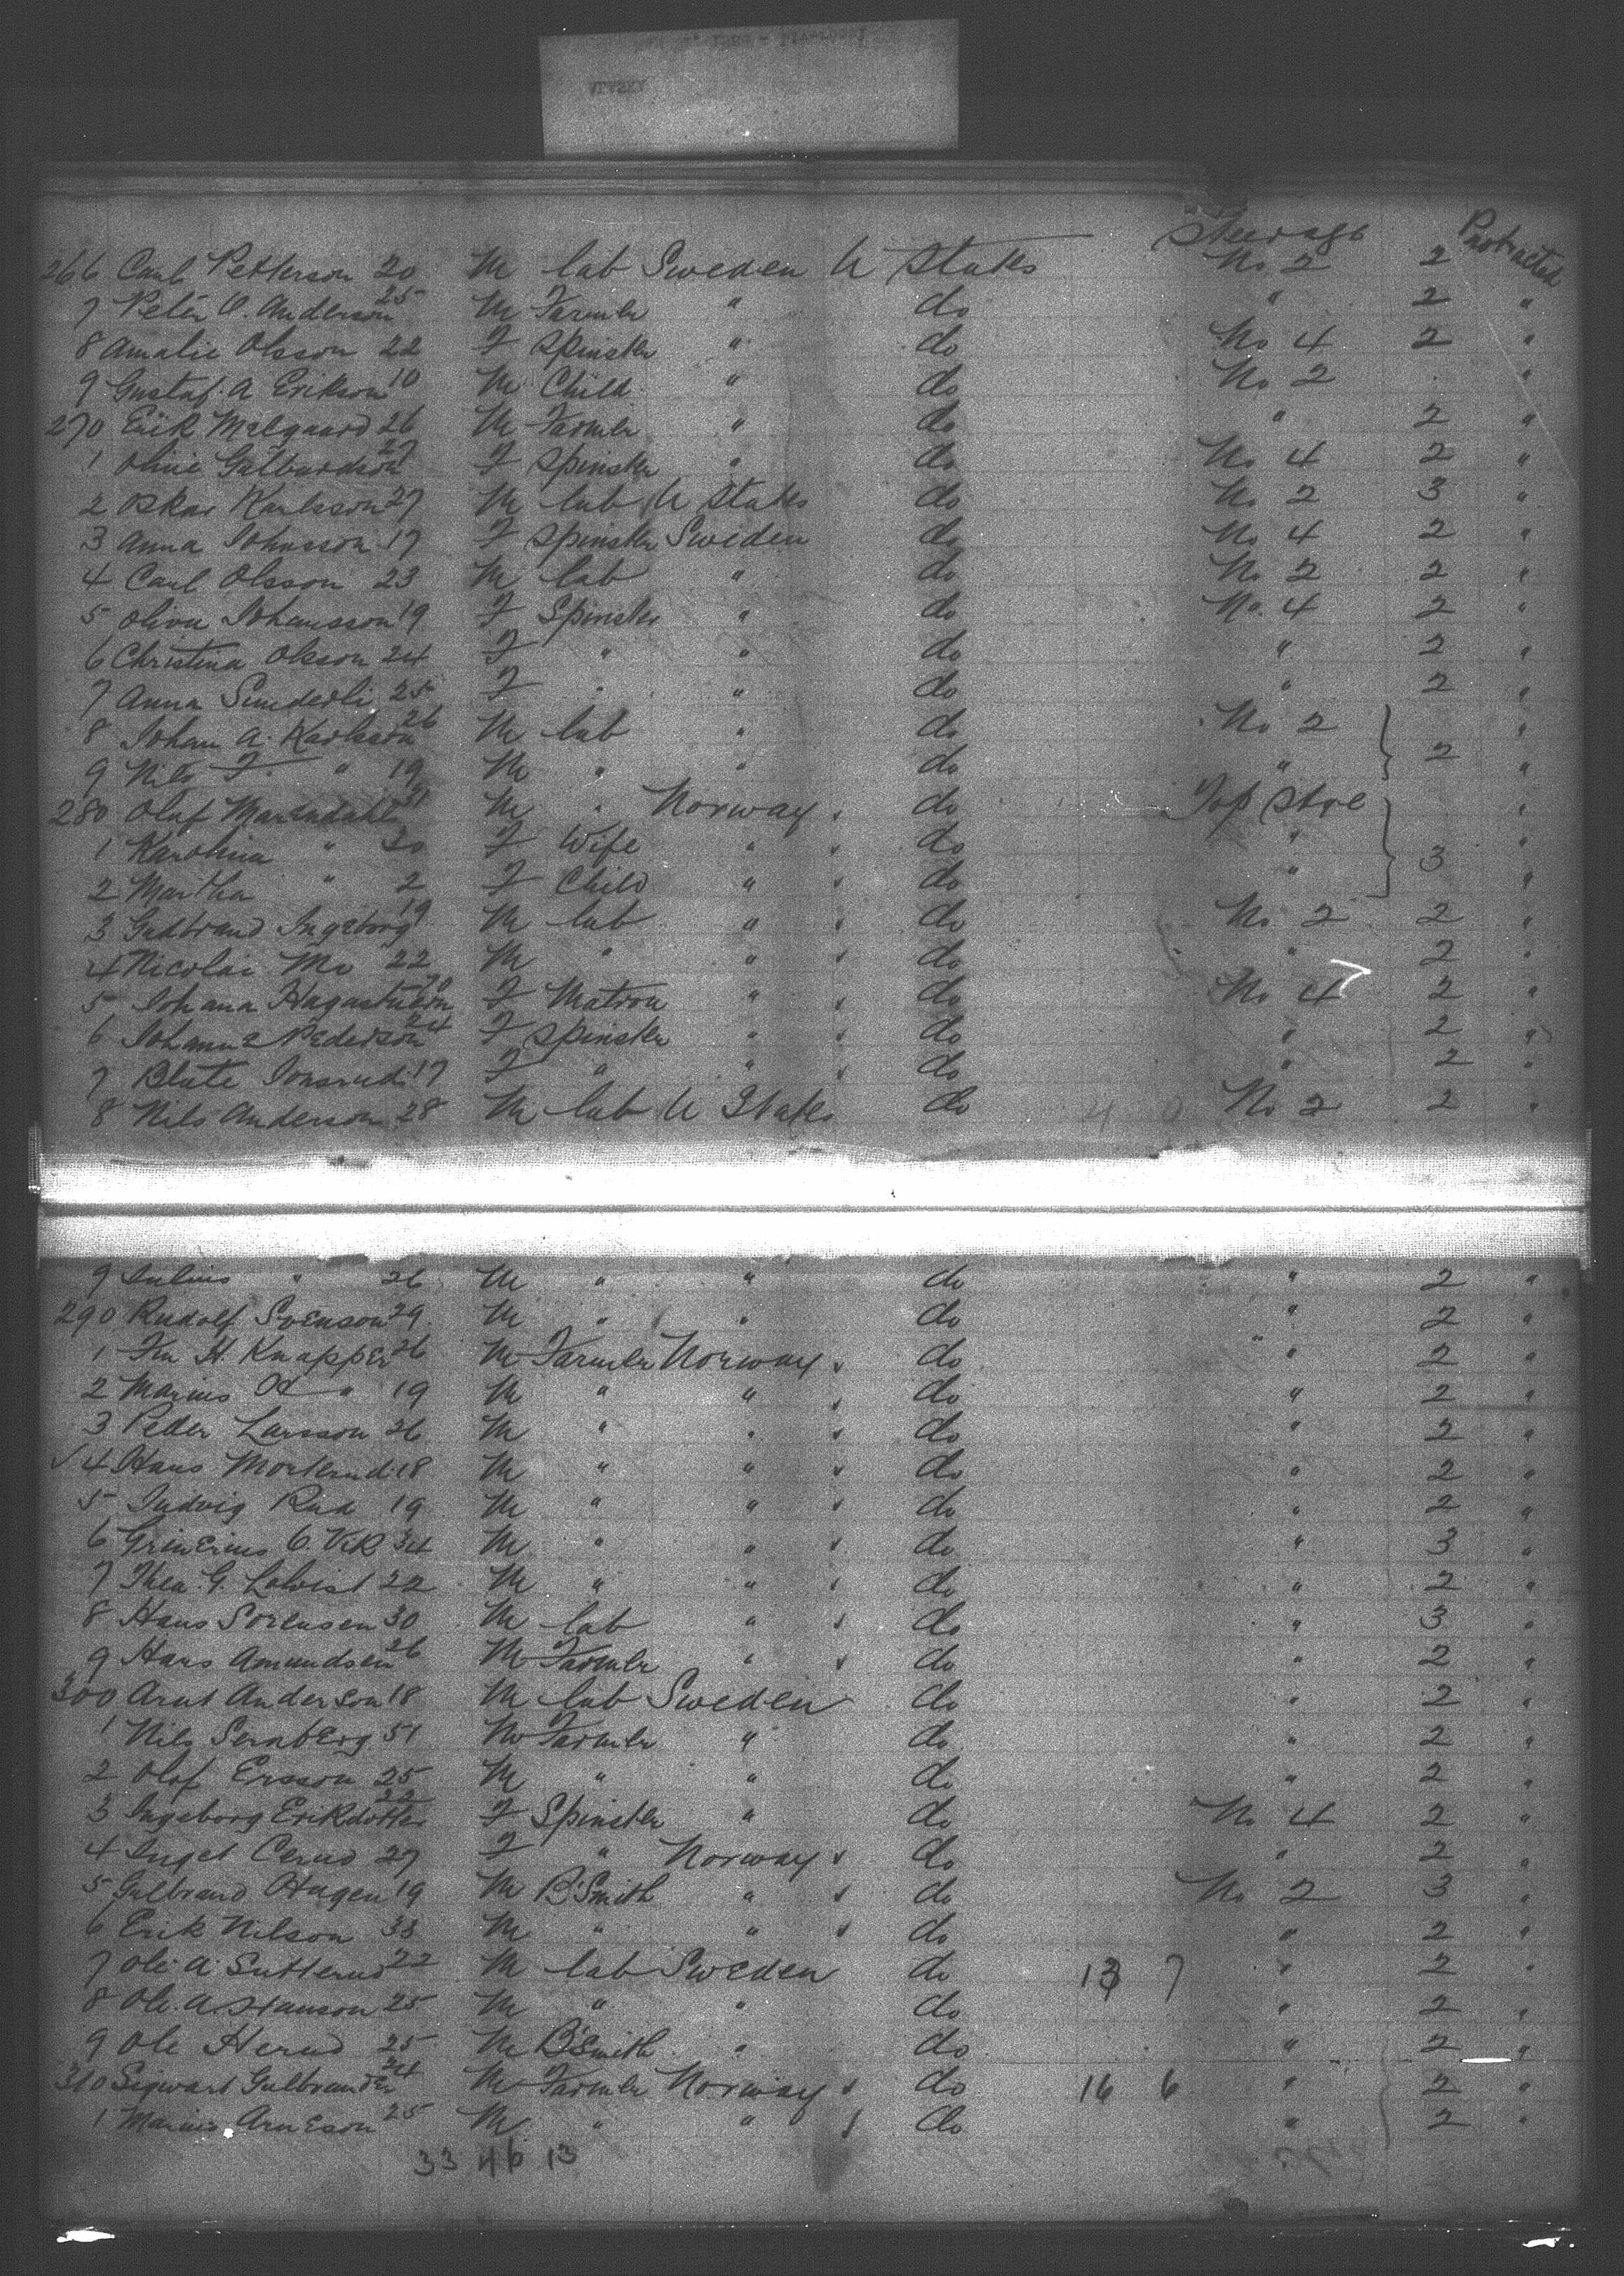 Steerage Protracted
266 Carl Petterson 20 M lab Sweden U States No 2 2
7 Peter O. Anderson 25 M Farmer " do " 2 "
8 Amalie Olsson 22 F Spinster " do No 4 2 "
9 Gustaf. A Erikson 10 M Child " do No 2 "
270 Erik Melgaard 26 M Farmer " do " 2 "
1 Oline 27 F Spinster " do No 4 2 "
2 Oskar Karlsson 27 M lab U States do No 2 3 "
3 Anna Johnsson 17 F Spinster Sweden do No 4 2 "
4 Carl Olsson 23 M lab " do No 2 2 "
5 Oliva Johansson 19 F Spinster " do No. 4 2 "
6 Christina Olsson 24 F " " do " 2 "
7 Anna 25 F " " do " 2 "
8 Johan A. Karlsson 26 M lab " do No 2 "
9 Nils F. " 19 M " " do " 2 "
280 Olaf 31 M " Norway do Top Stge "
1 Karolina " 30 F Wife " do " "
2 Martha " 2 F Child " do " 3 "
3 Gudbrand Ingeborg 19 M lab " do No 2 2 "
4 Nicolai Mo 22 M " " do " 2 "
5 Johana 70 F Matron " do No 4 2 "
6 Johanne Pederson 24 F Spinster " do " 2 "
7 17 F " " do " 2 "
8 Nils Anderson 28 M lab U States do 4 0 No 2 2 "
9 Julius " 26 M " " do " 2 "
290 Rudolf Svenson 29 M " " do " 2 "
1 H. Knapper 26 M Farmer Norway do " 2 "
2 Marius " 19 M " " do " 2 "
3 Peder Larsson 26 M " " do " 2 "
4 Hans Morterud 18 M " " do " 2 "
5 Ludvig Rud 19 M " " do " 2 "
6 Vik 34 M " " do " 3 "
7 Thea. G. 22 M " " do " 2 "
8 Hans Sorensen 30 M lab " do " 3 "
9 Hans Amundsen 26 M Farmer " do " 2 "
300 Anderson 18 M lab Sweden do " 2 "
1 Nils 51 M Farmer " do " 2 "
2 Olof Ersson 25 M " " do " 2 "
3 Ingeborg Erikdotter 22 F Spinster " do No 4 2 "
4 27 F " Norway do " 2 "
5 Gulbrand Hagen 19 M B'Smith " do No 2 3 "
6 Erik Nilson 33 M " " do " 2 "
7 Ole A. 22 M lab Sweden do 13 7 " 2 "
8 Ole. A. Hanson 25 M " " do " 2 "
9 Ole Herud 25 M B'Smith " do " 2 "
310 Sigwart 24 M Farmer Norway do 16 6 " 2 "
1 Marius Arneson 25 M " " do " 2 "
33 46 13